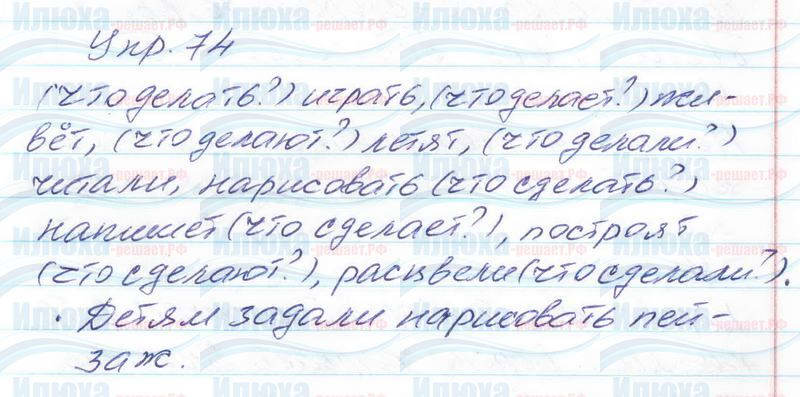 Упр. 74
(что делать?) играть, (что делает?) жи-
вёт, (что делают?) летят, (что делали?)
читали, нарисовать (что сделать?)
напишет (что сделает?), построят
(что сделают?), расцвели (что сделали?).
· Детям задали нарисовать пей-
заж.